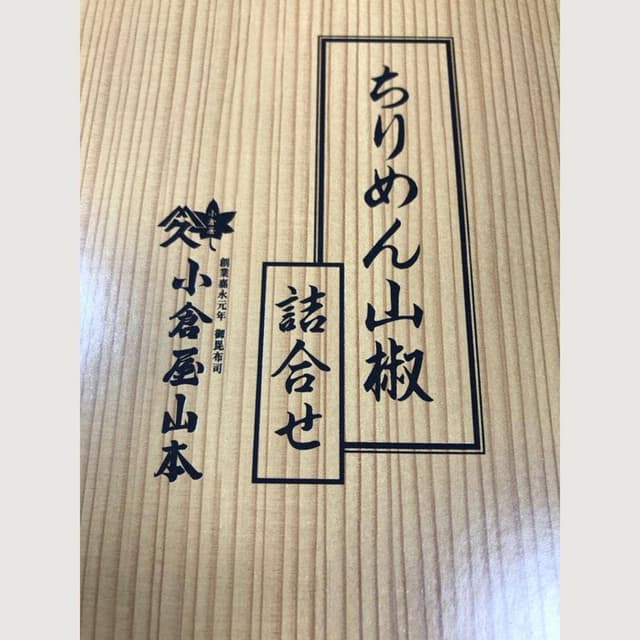 ちりめん山椒
詰合せ
小倉屋
創業嘉永元年 御昆布司
小倉屋山本